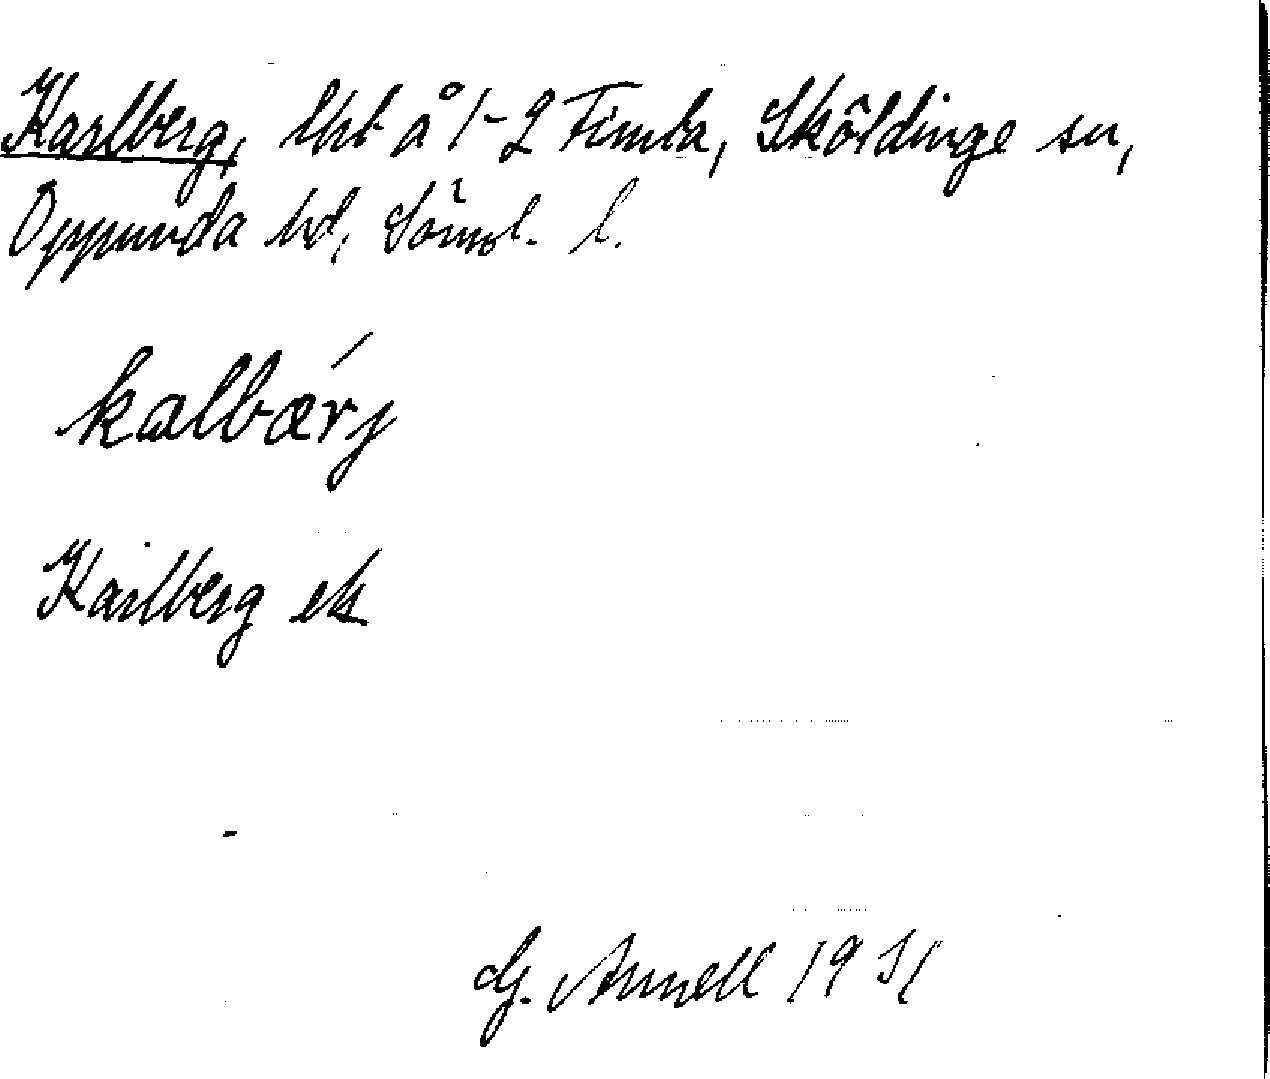 Karlberg, lht å 1-2 Fimta, Sköldinge sn,
Oppunda hd, Söml. l.
kalbærj
Karlberg ek
G. Annell 1931